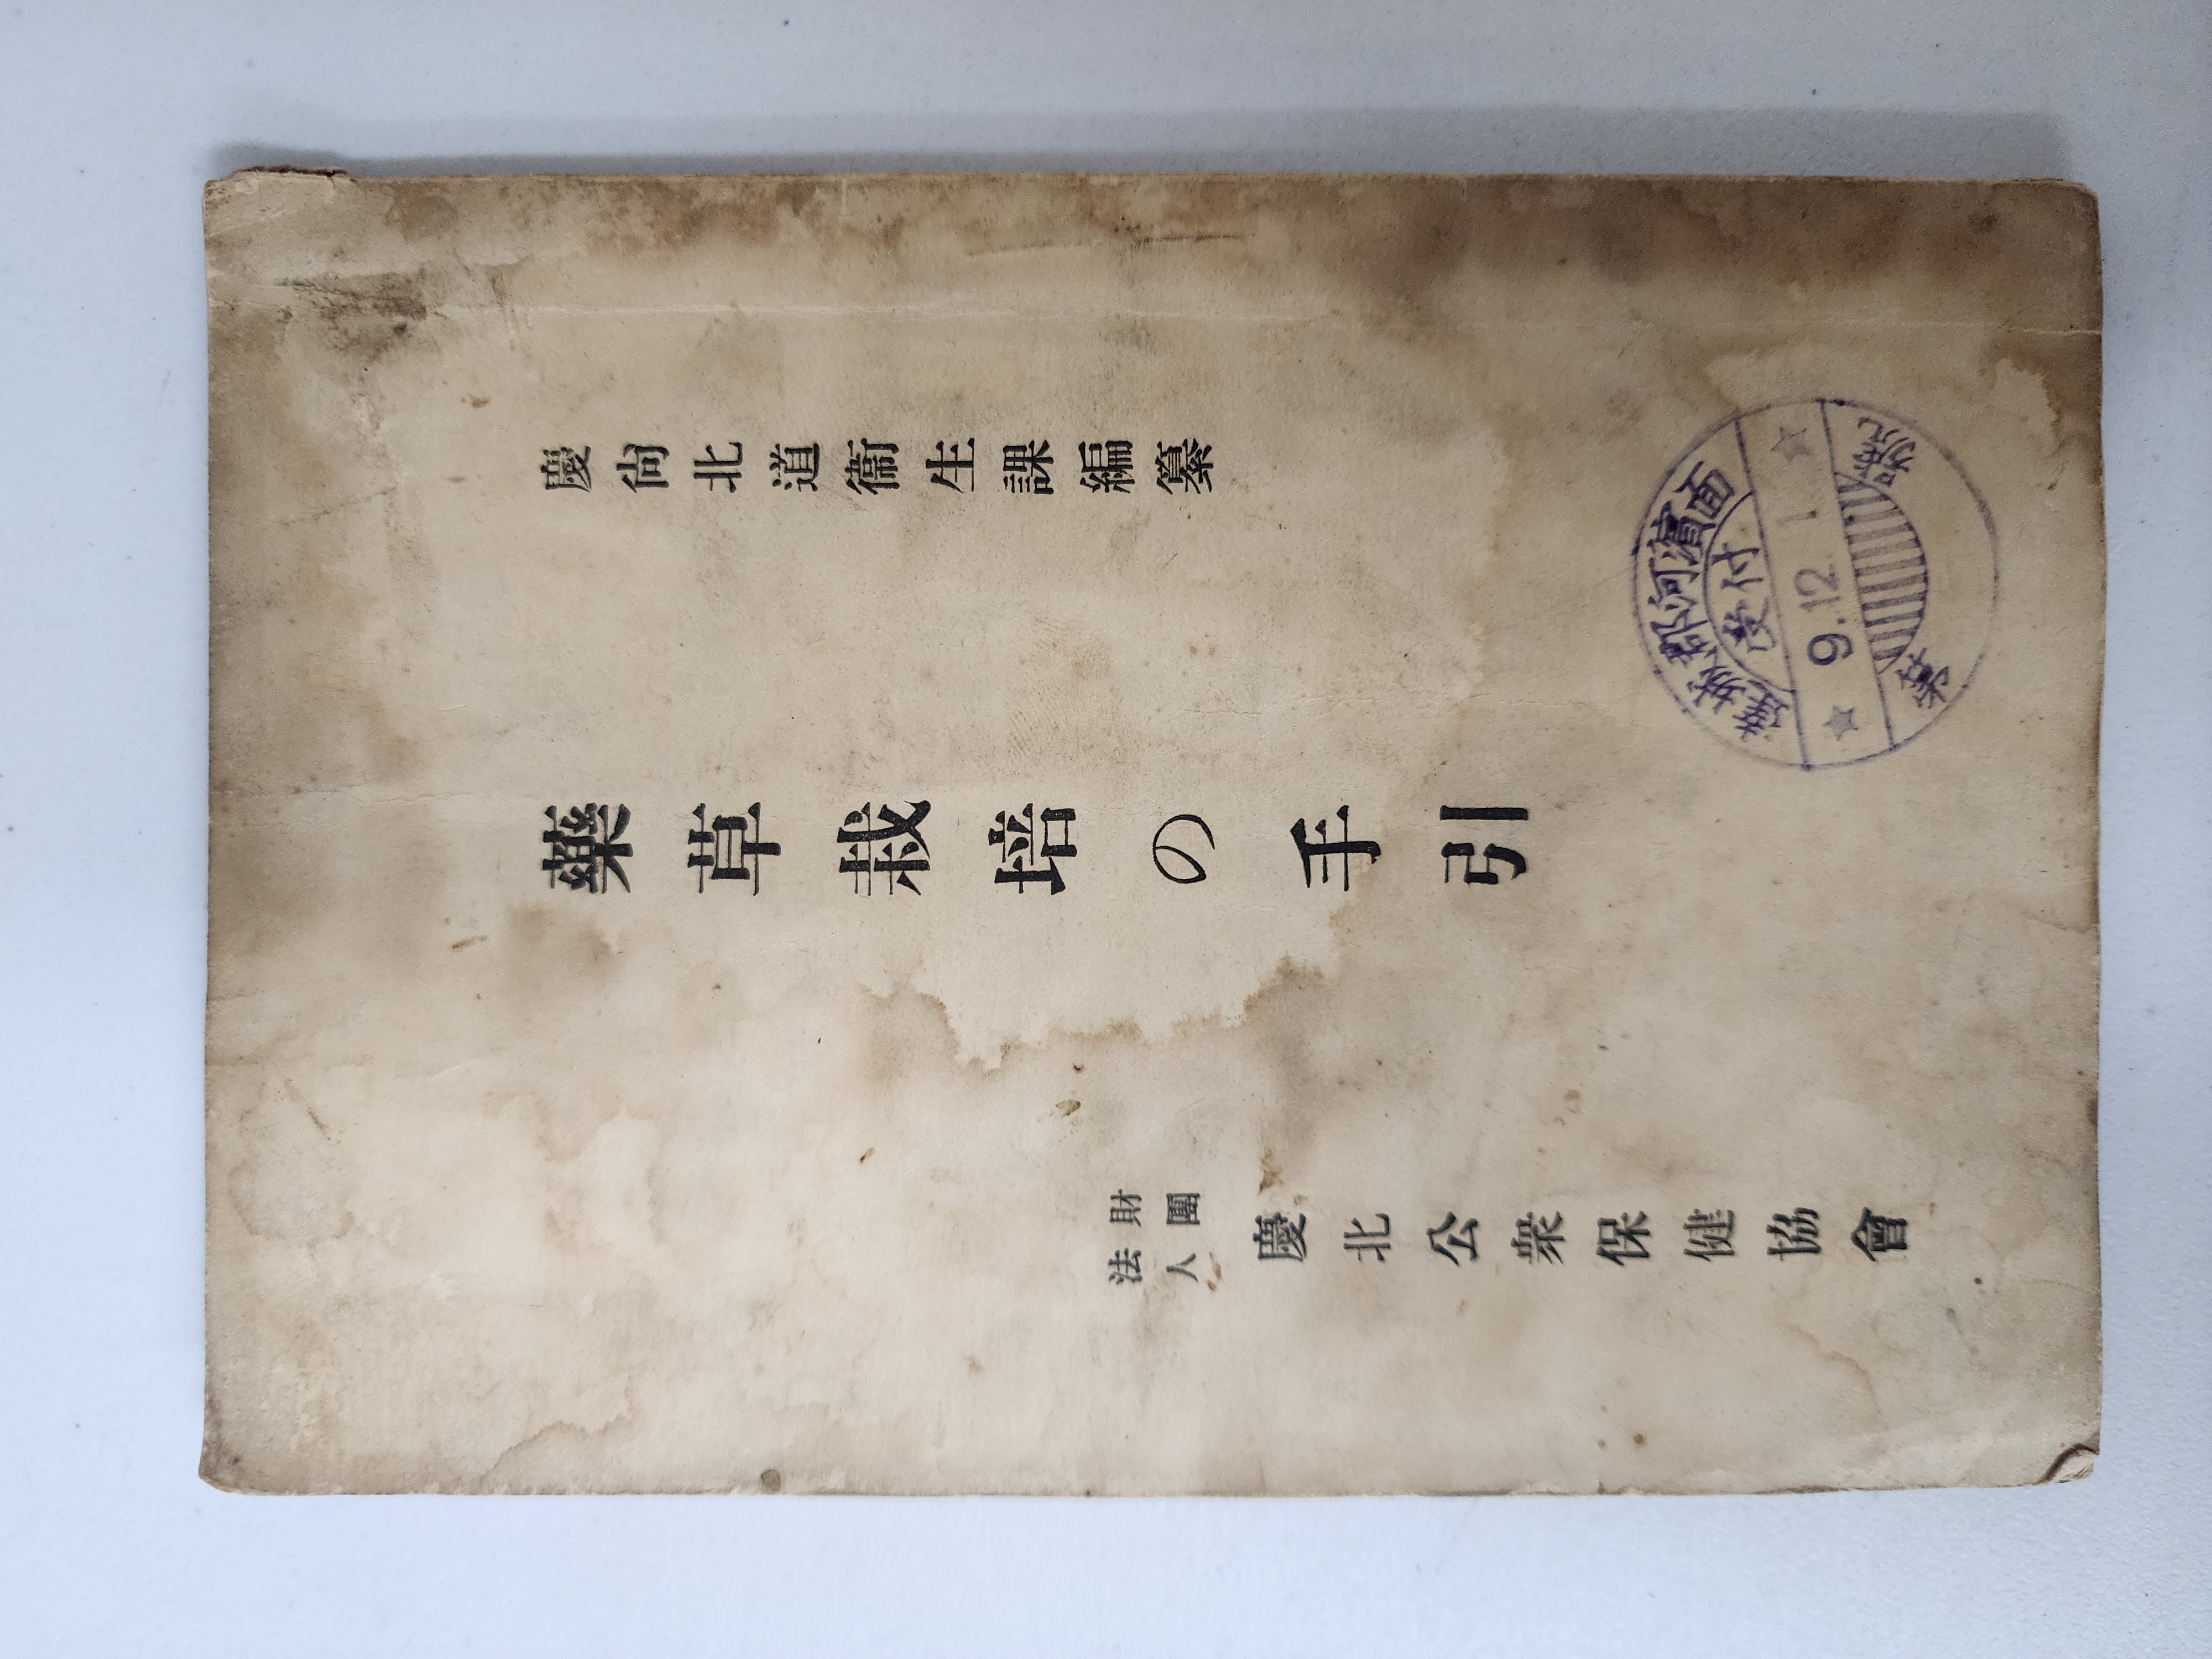 慶尙北道衞生課編纂
藥草栽培の手引
財團
法人
慶北公衆保健協會
達城郡河濱面
受付
9.12.1
第
號